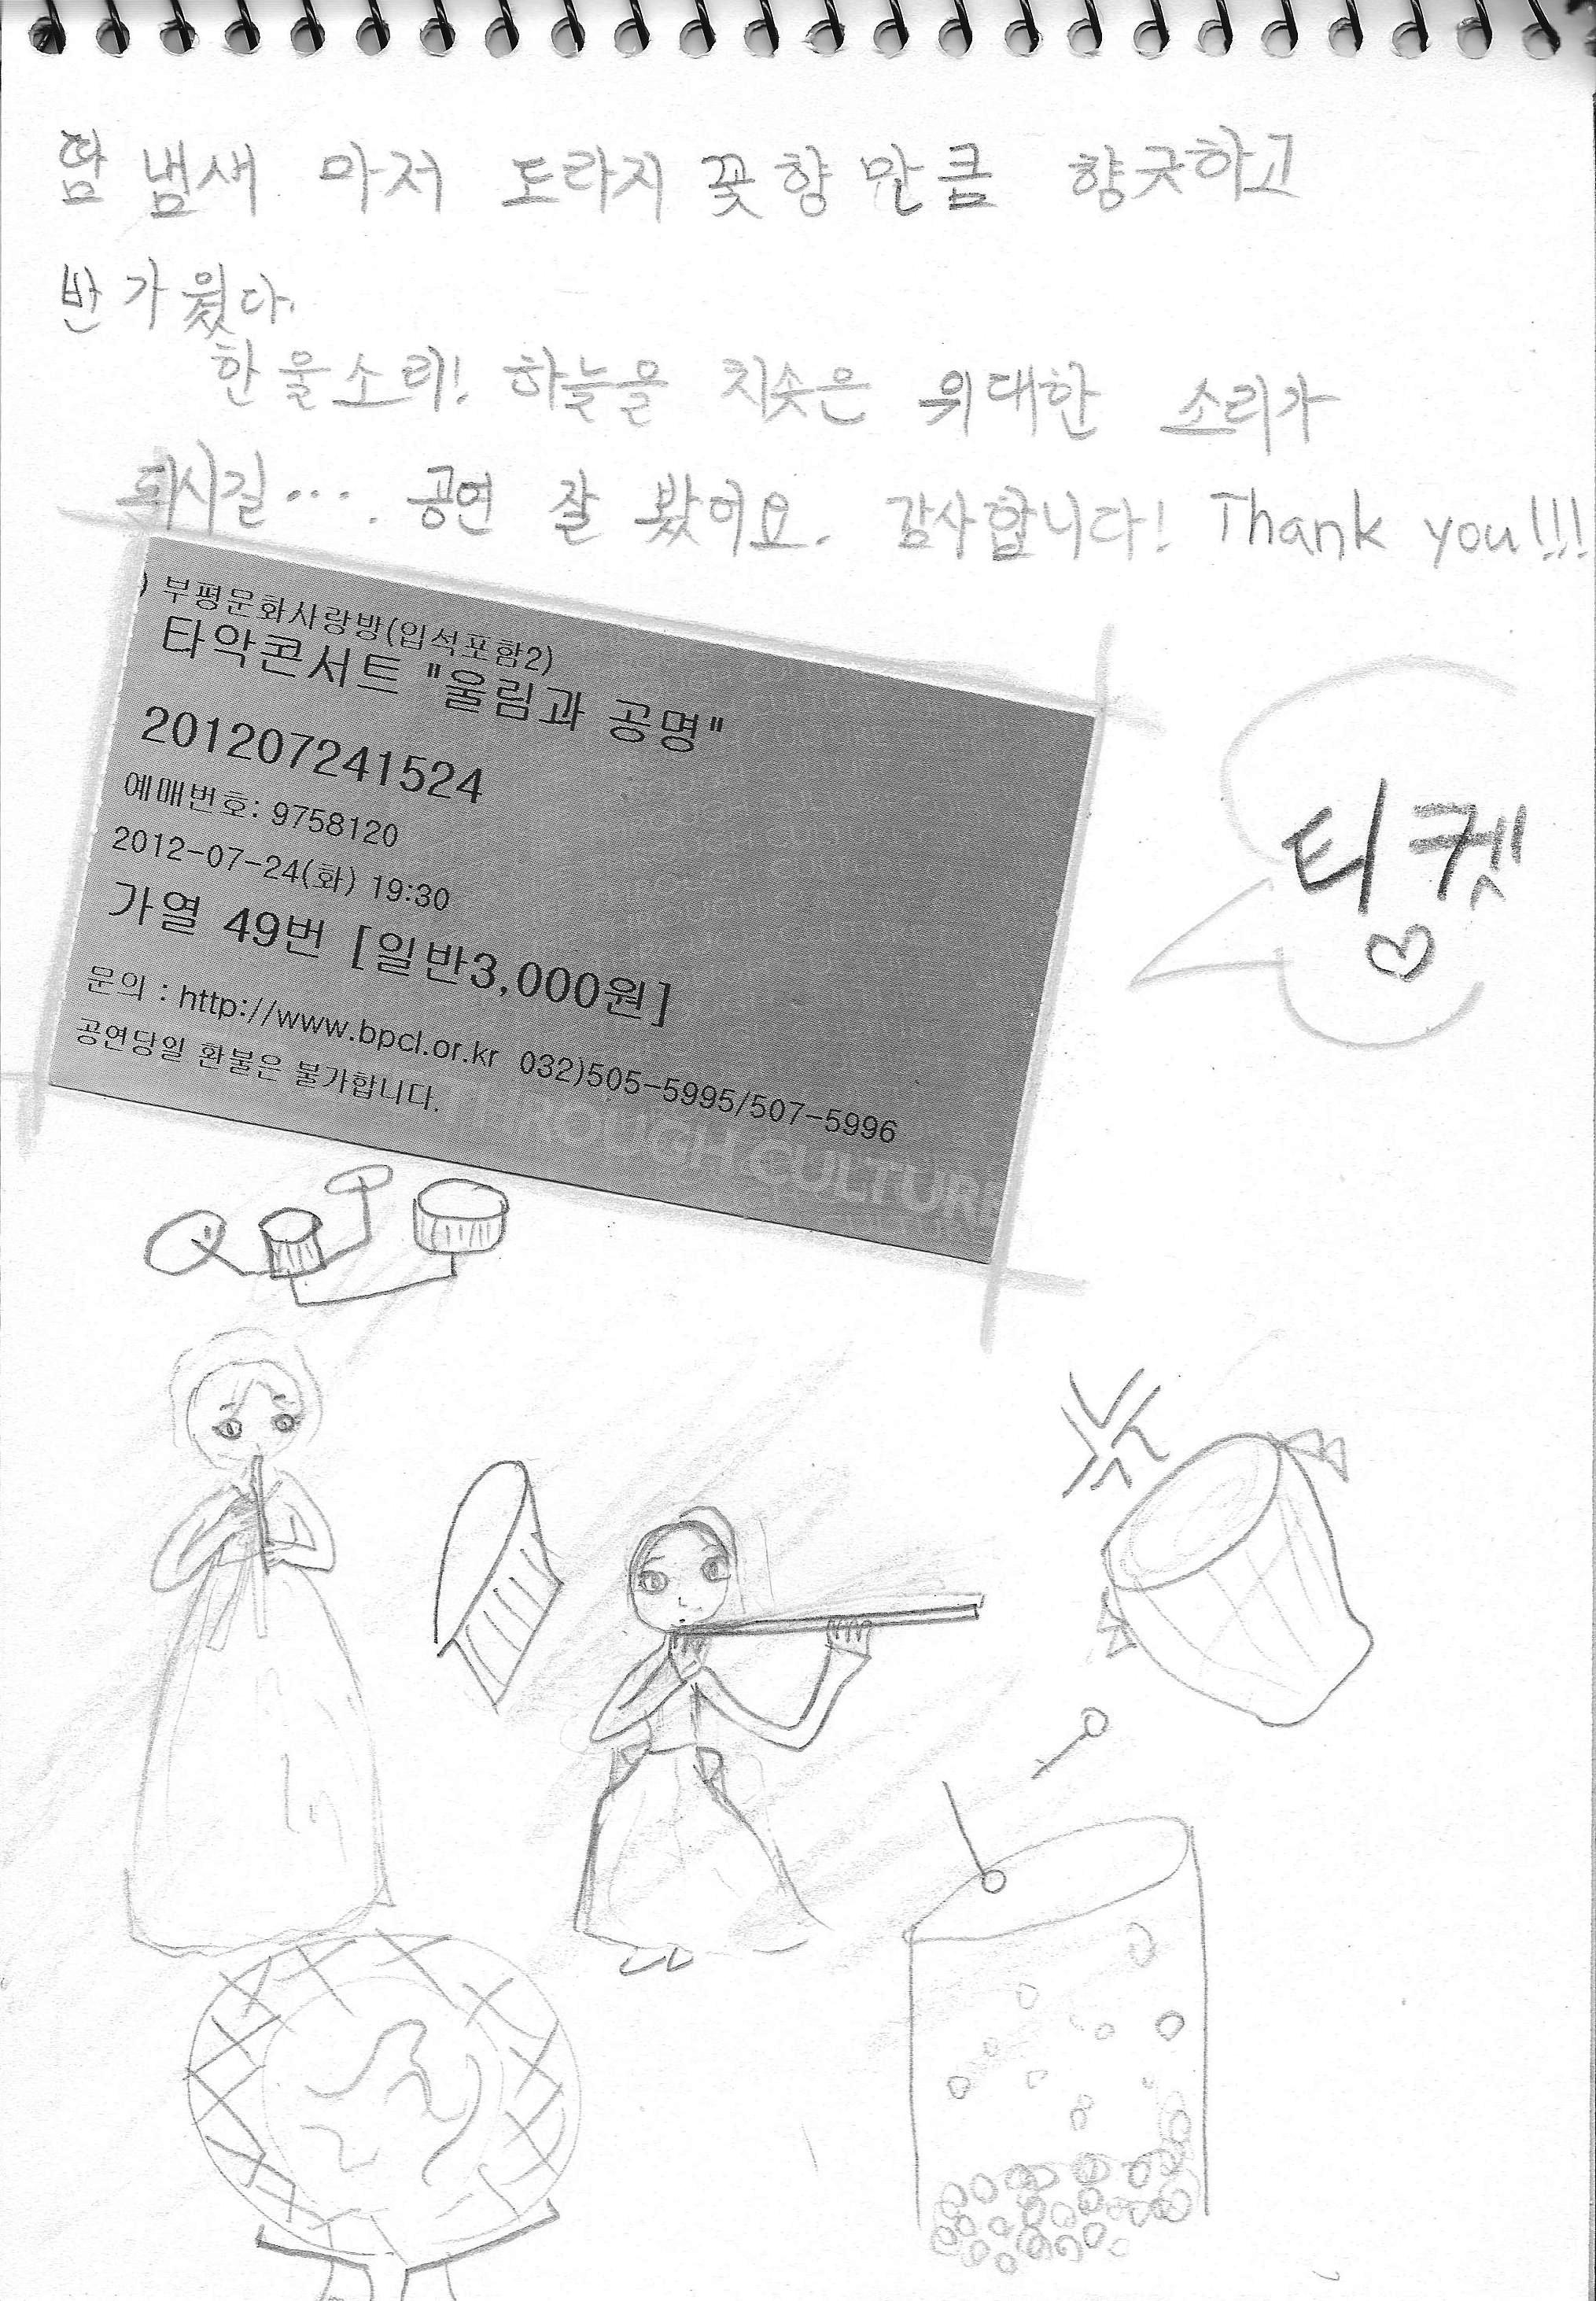 땀 냄새 마저 도라지 꽃 향 만큼 향긋하고
반가웠다.
한울소리! 하늘을 치솟은 위대한 소리가
되시길.... 공연 잘 봤어요. 감사합니다! Thank you!!!
) 부평문화사랑방(입석포함2)
타악콘서트 "울림과 공명"
201207241524
예매번호: 9758120
2012-07-24(화) 19:30
가열 49번 [일반3,000원]
문의 : http://www.bpcl.or.kr 032)505-5995/507-5996
공연당일 환불은 불가합니다.
THROUGH CULTURE
티켓